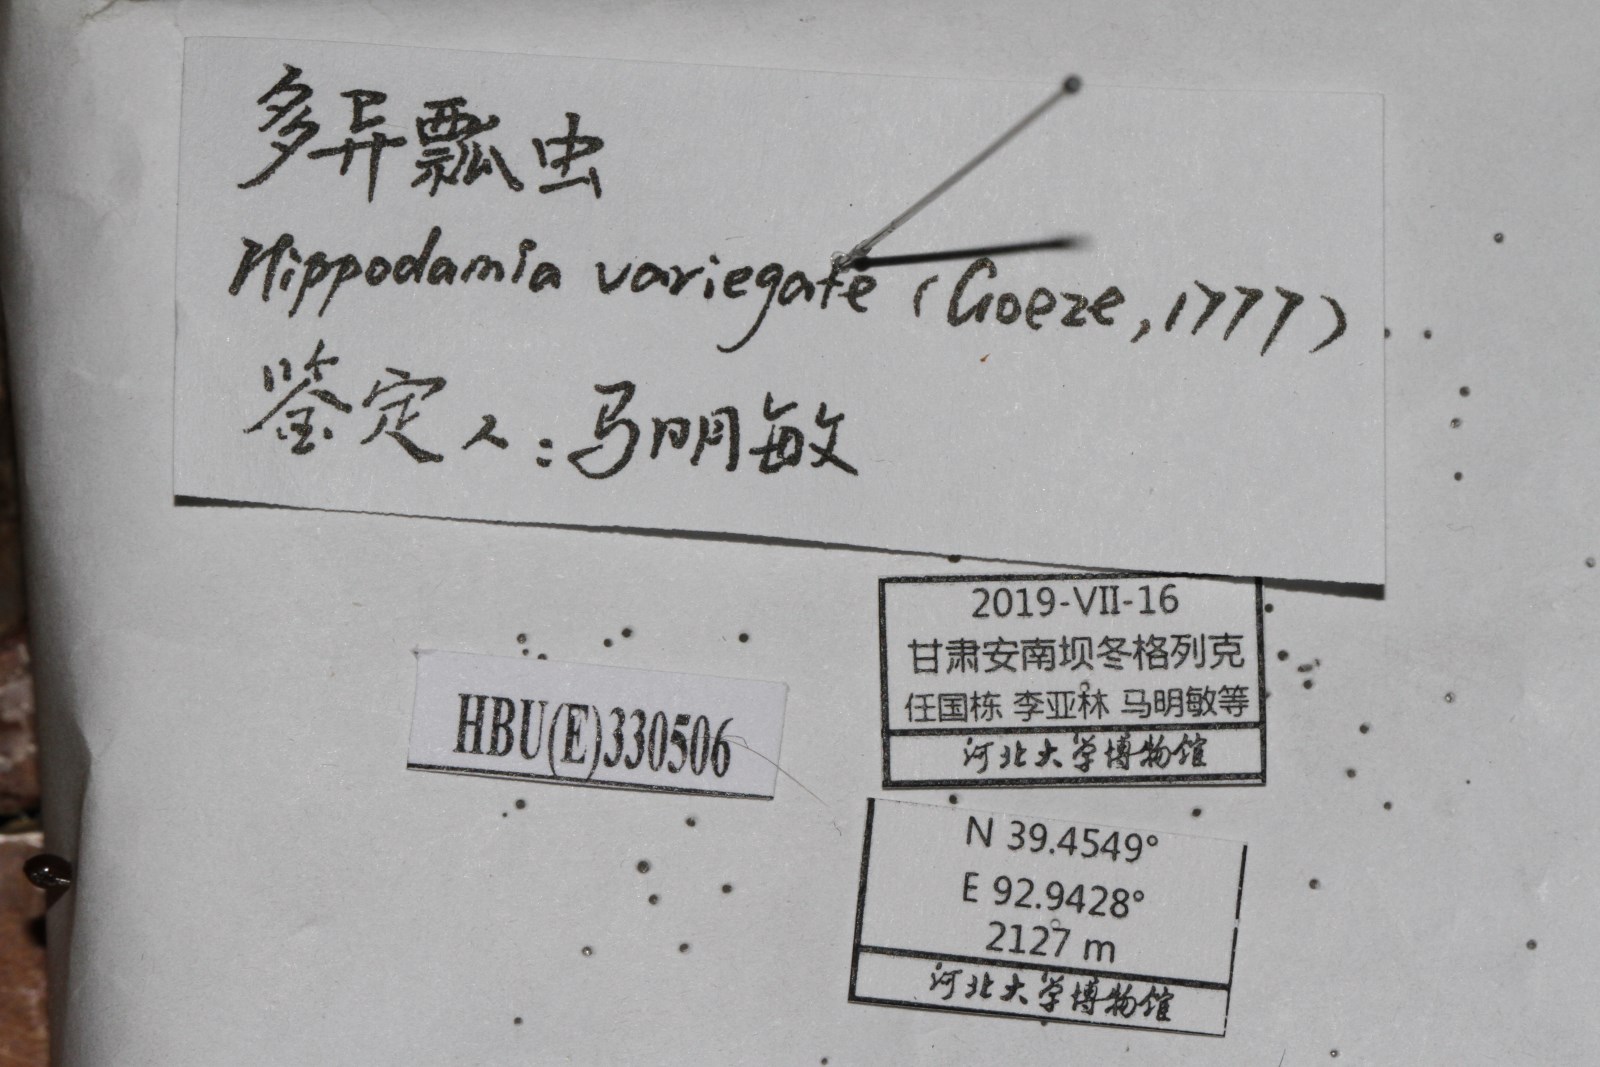 多异瓢虫
Hippodamia variegate (Goeze, 1777)
鉴定人:马明敏
2019-VII-16
甘肃安南坝冬格列克
任国栋 李亚林 马明敏等
河北大学博物馆
HBU(E)330506
N 39.4549°
E 92.9428°
2127 m
河北大学博物馆